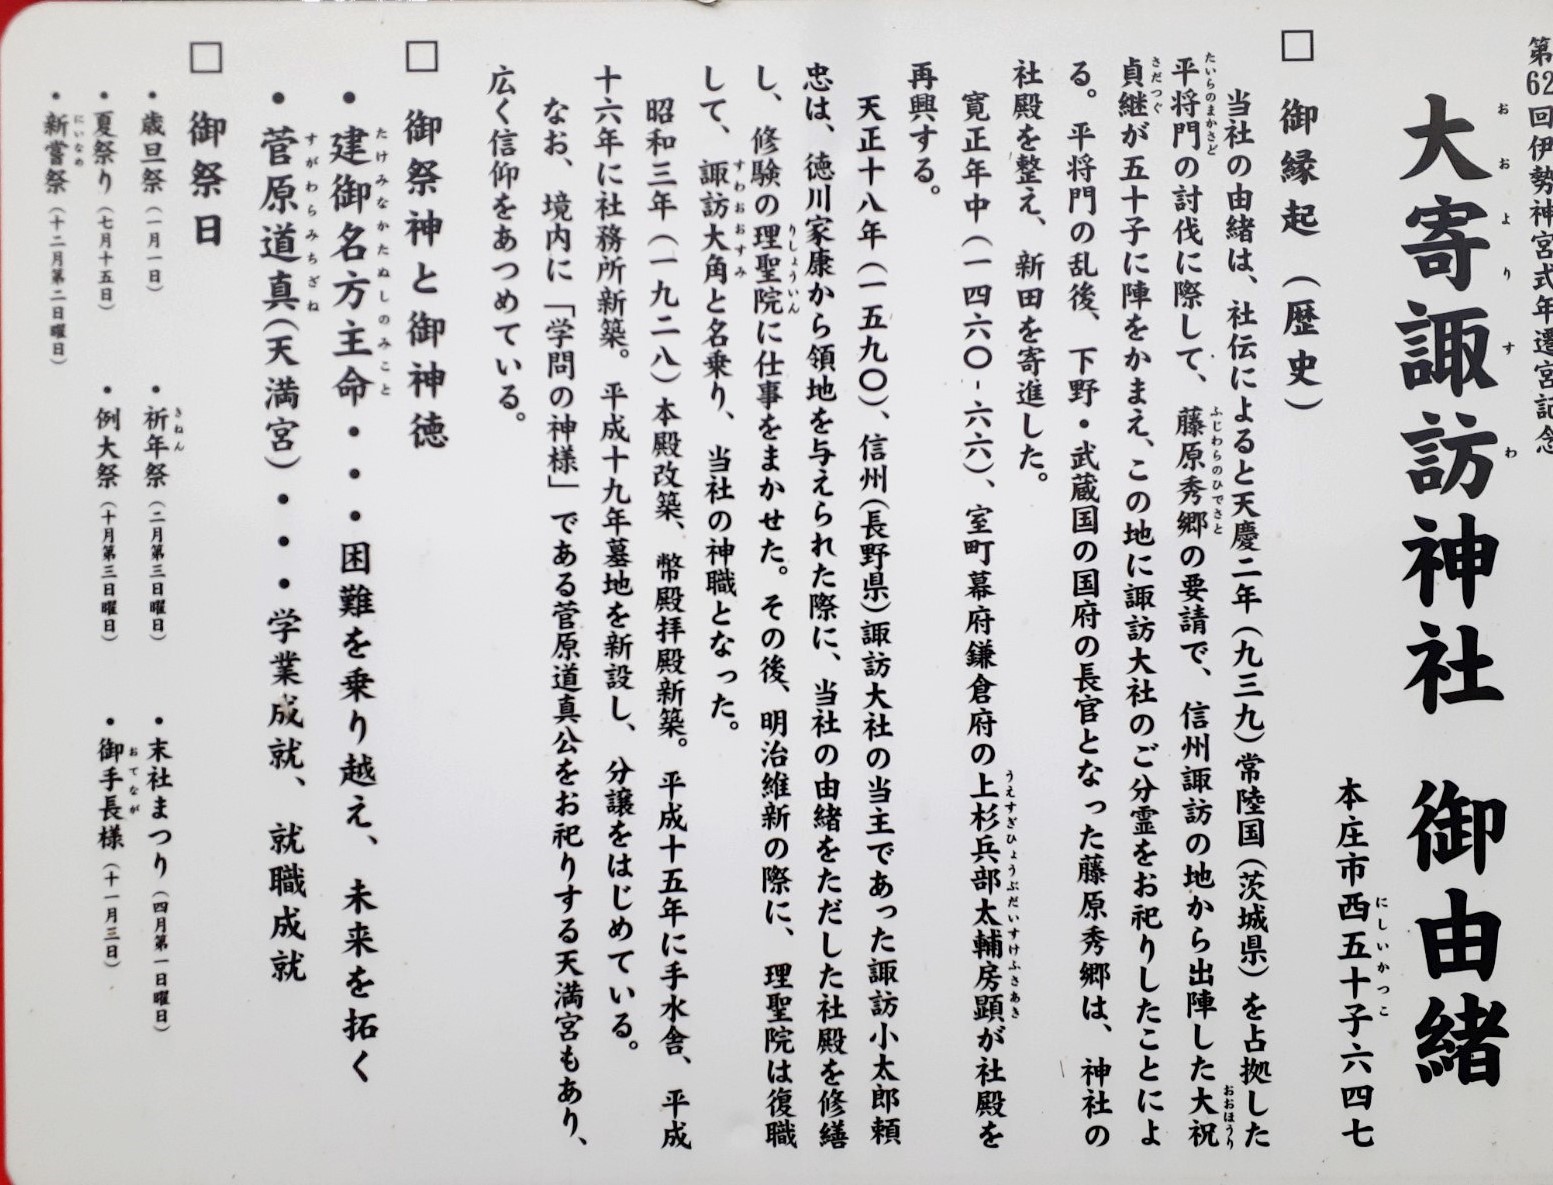 第62回伊勢神宮式年遷宮記念
大寄諏訪神社 御由緒
おおよりすわ
本庄市西五十子六四七
にしいかっこ
□ 御縁起(歴史)
当社の由緒は、社伝によると天慶二年(九三九)常陸国(茨城県)を占拠した
平将門の討伐に際して、藤原秀郷の要請で、信州諏訪の地から出陣した大祝
たいらのまかさど ふじわらのひでさと おおほうり
貞継が五十子に陣をかまえ、この地に諏訪大社のご分霊をお祀りしたことによ
さだつぐ
る。平将門の乱後、下野・武蔵国の国府の長官となった藤原秀郷は、神社の
社殿を整え、新田を寄進した。
寛正年中(一四六〇-六六)、室町幕府鎌倉府の上杉兵部太輔房顕が社殿を
うえすぎひょうぶだいすけふさあき
再興する。
天正十八年(一五九〇)、信州(長野県)諏訪大社の当主であった諏訪小太郎頼
忠は、徳川家康から領地を与えられた際に、当社の由緒をただした社殿を修繕
し、修験の理聖院に仕事をまかせた。その後、明治維新の際に、理聖院は復職
りしょういん
して、諏訪大角と名乗り、当社の神職となった。
すわおおすみ
昭和三年(一九二八)本殿改築、幣殿拝殿新築。平成十五年に手水舎、平成
十六年に社務所新築。平成十九年墓地を新設し、分譲をはじめている。
なお、境内に「学問の神様」である菅原道真公をお祀りする天満宮もあり、
広く信仰をあつめている。
□ 御祭神と御神徳
・建御名方主命・・・困難を乗り越え、未来を拓く
たけみなかたぬしのみこと
・菅原道真(天満宮)・・・学業成就、就職成就
すがわらみちざね
□ 御祭日
・歳旦祭(一月一日) ・祈年祭(二月第三日曜日) ・末社まつり(四月第一日曜日)
きねん
・夏祭り(七月十五日) ・例大祭(十月第三日曜日) ・御手長様(十一月三日)
おてなが
・新嘗祭(十二月第二日曜日)
にいなめ